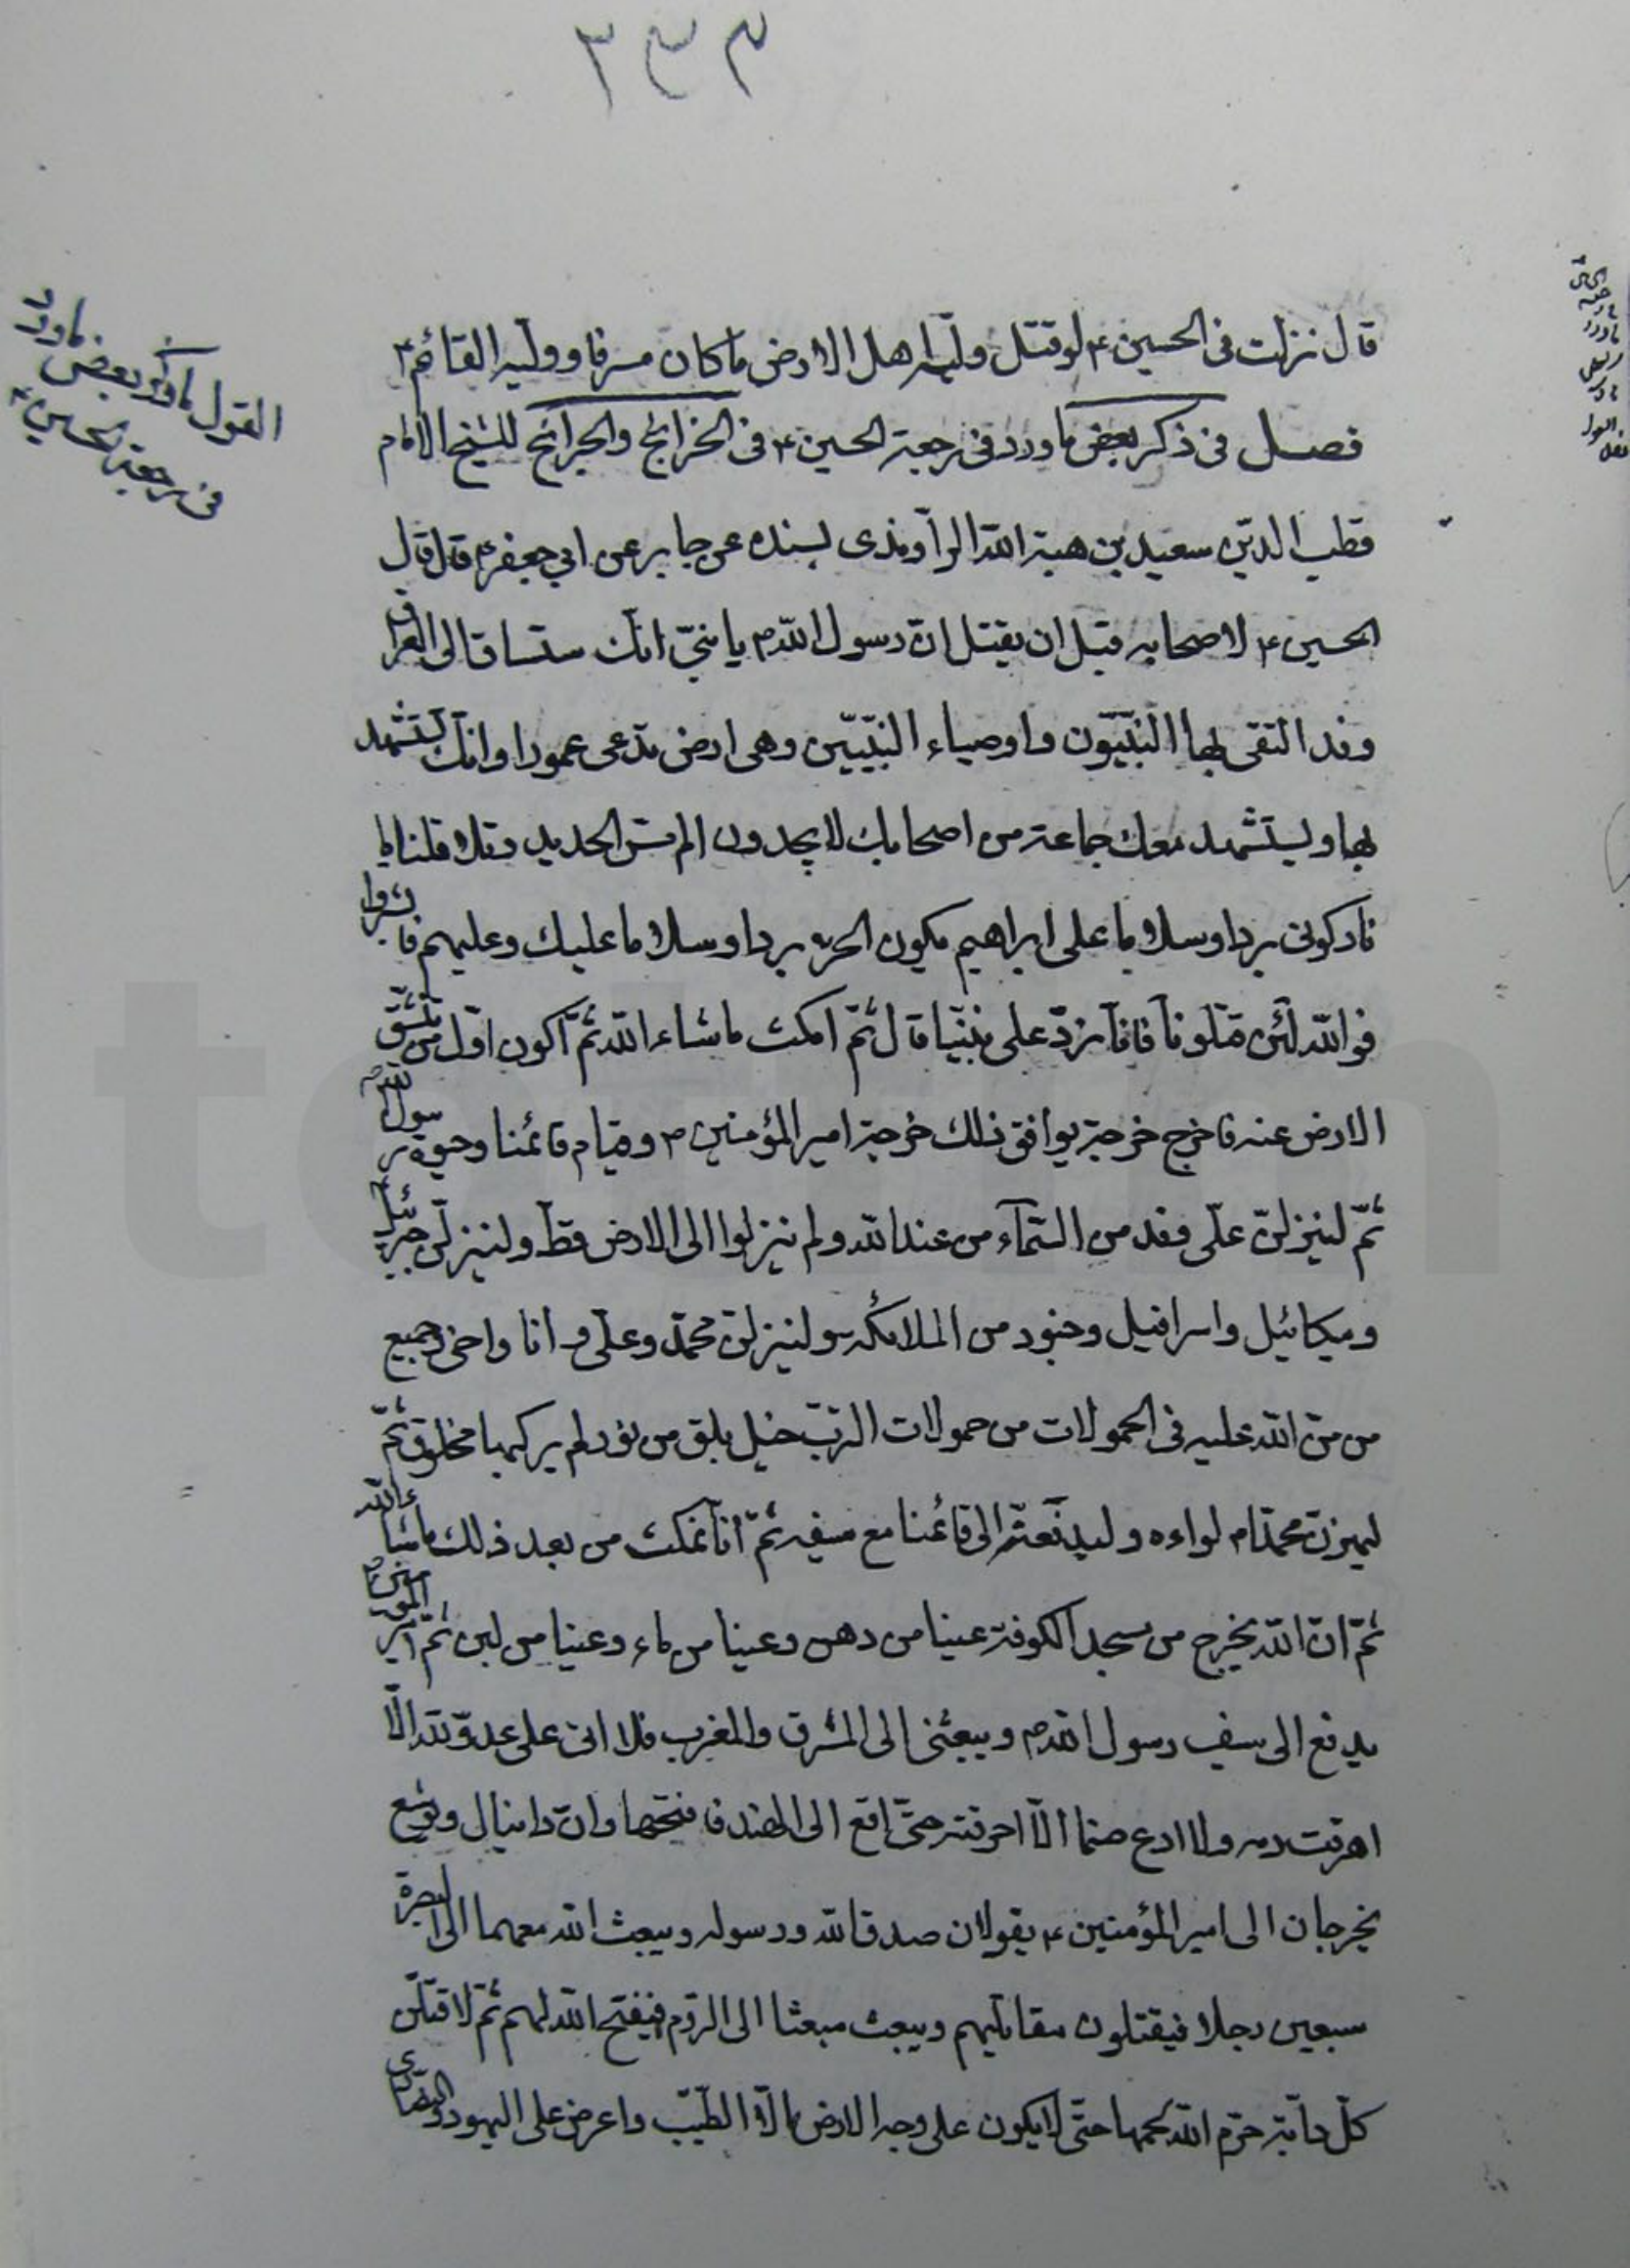 ٣٣٣
قال نزلت فى الحسين ع لو قتل وليه اهل الارض ما كان مسرفا ووليه القائم ع
فصل فى ذكر بعض ما ورد فى رجعة الحسين ع فى الخرائج والجرائح للشيخ الامام
قطب الدّين سعيد بن هبة الله الراوندى بسنده عن جابر عن ابي جعفر ع قال قال
الحسين ع لاصحابه قبل ان يقتل انّ رسول الله ص يا بنىّ انّك ستساق الى العراق
وقد التقى بها النّبيّون واوصياء النّبيّين وهى ارض تدعى عمورا وانّك تستشهد
بها ويستشهد معك جماعة من اصحابك لا يجدون الم مسّ الحديد وتلا قلنا يا
نار كونى بردا وسلاما على ابراهيم يكون الحرب بردا وسلاما عليك وعليهم فابشروا
فو الله لئن قتلونا فانّا نردّ على نبيّنا قال ثمّ امكث ما شاء الله ثمّ اكون اوّل من تنشقّ
الارض عنه فاخرج خرجة يوافق ذلك خرجة امير المؤمنين ع وقيام قائمنا وحيوة رسول الله ص
ثمّ لينزلنّ علىّ وفد من السّمآء من عند الله ولم ينزلوا الى الارض قطّ ولينزلنّ جبرئيل
وميكائيل واسرافيل وجنود من الملائكة ولينزلنّ محمّد وعلىّ وانا واخى وجميع
من منّ الله عليه فى الحمولات من حمولات الربّ خيل بلق من نور لم يركبها مخلوق ثمّ
ليهزنّ محمّد ص لواءه وليدفعنّه الى قائمنا مع سيفه ثمّ انّا نمكث من بعد ذلك ما شاء الله
ثمّ انّ الله يخرج من مسجد الكوفة عينا من دهن وعينا من ماء وعينا من لبن ثمّ امير المؤمنين ع
يدفع الى سيف رسول الله ص ويبعثنى الى المشرق والمغرب فلا اتى على عدوّ لله الّا
اهرقت دمه ولا ادع صنما الّا احرقته حتّى اقع الى الهند فافتحها وانّ دانيال ويوشع
يخرجان الى امير المؤمنين ع يقولان صدق الله ورسوله ويبعث الله معهما الى البصرة
سبعين رجلا فيقتلون مقاتليهم ويبعث مبعثا الى الرّوم فيفتح الله لهم ثمّ لاقتلنّ
كلّ دابّة حرّم الله لحمها حتّى لا يكون على وجه الارض الّا الطيّب واعرض على اليهود والنصارى
القول ما ذكر بعض ما ورد
فى رجعة الحسين ع